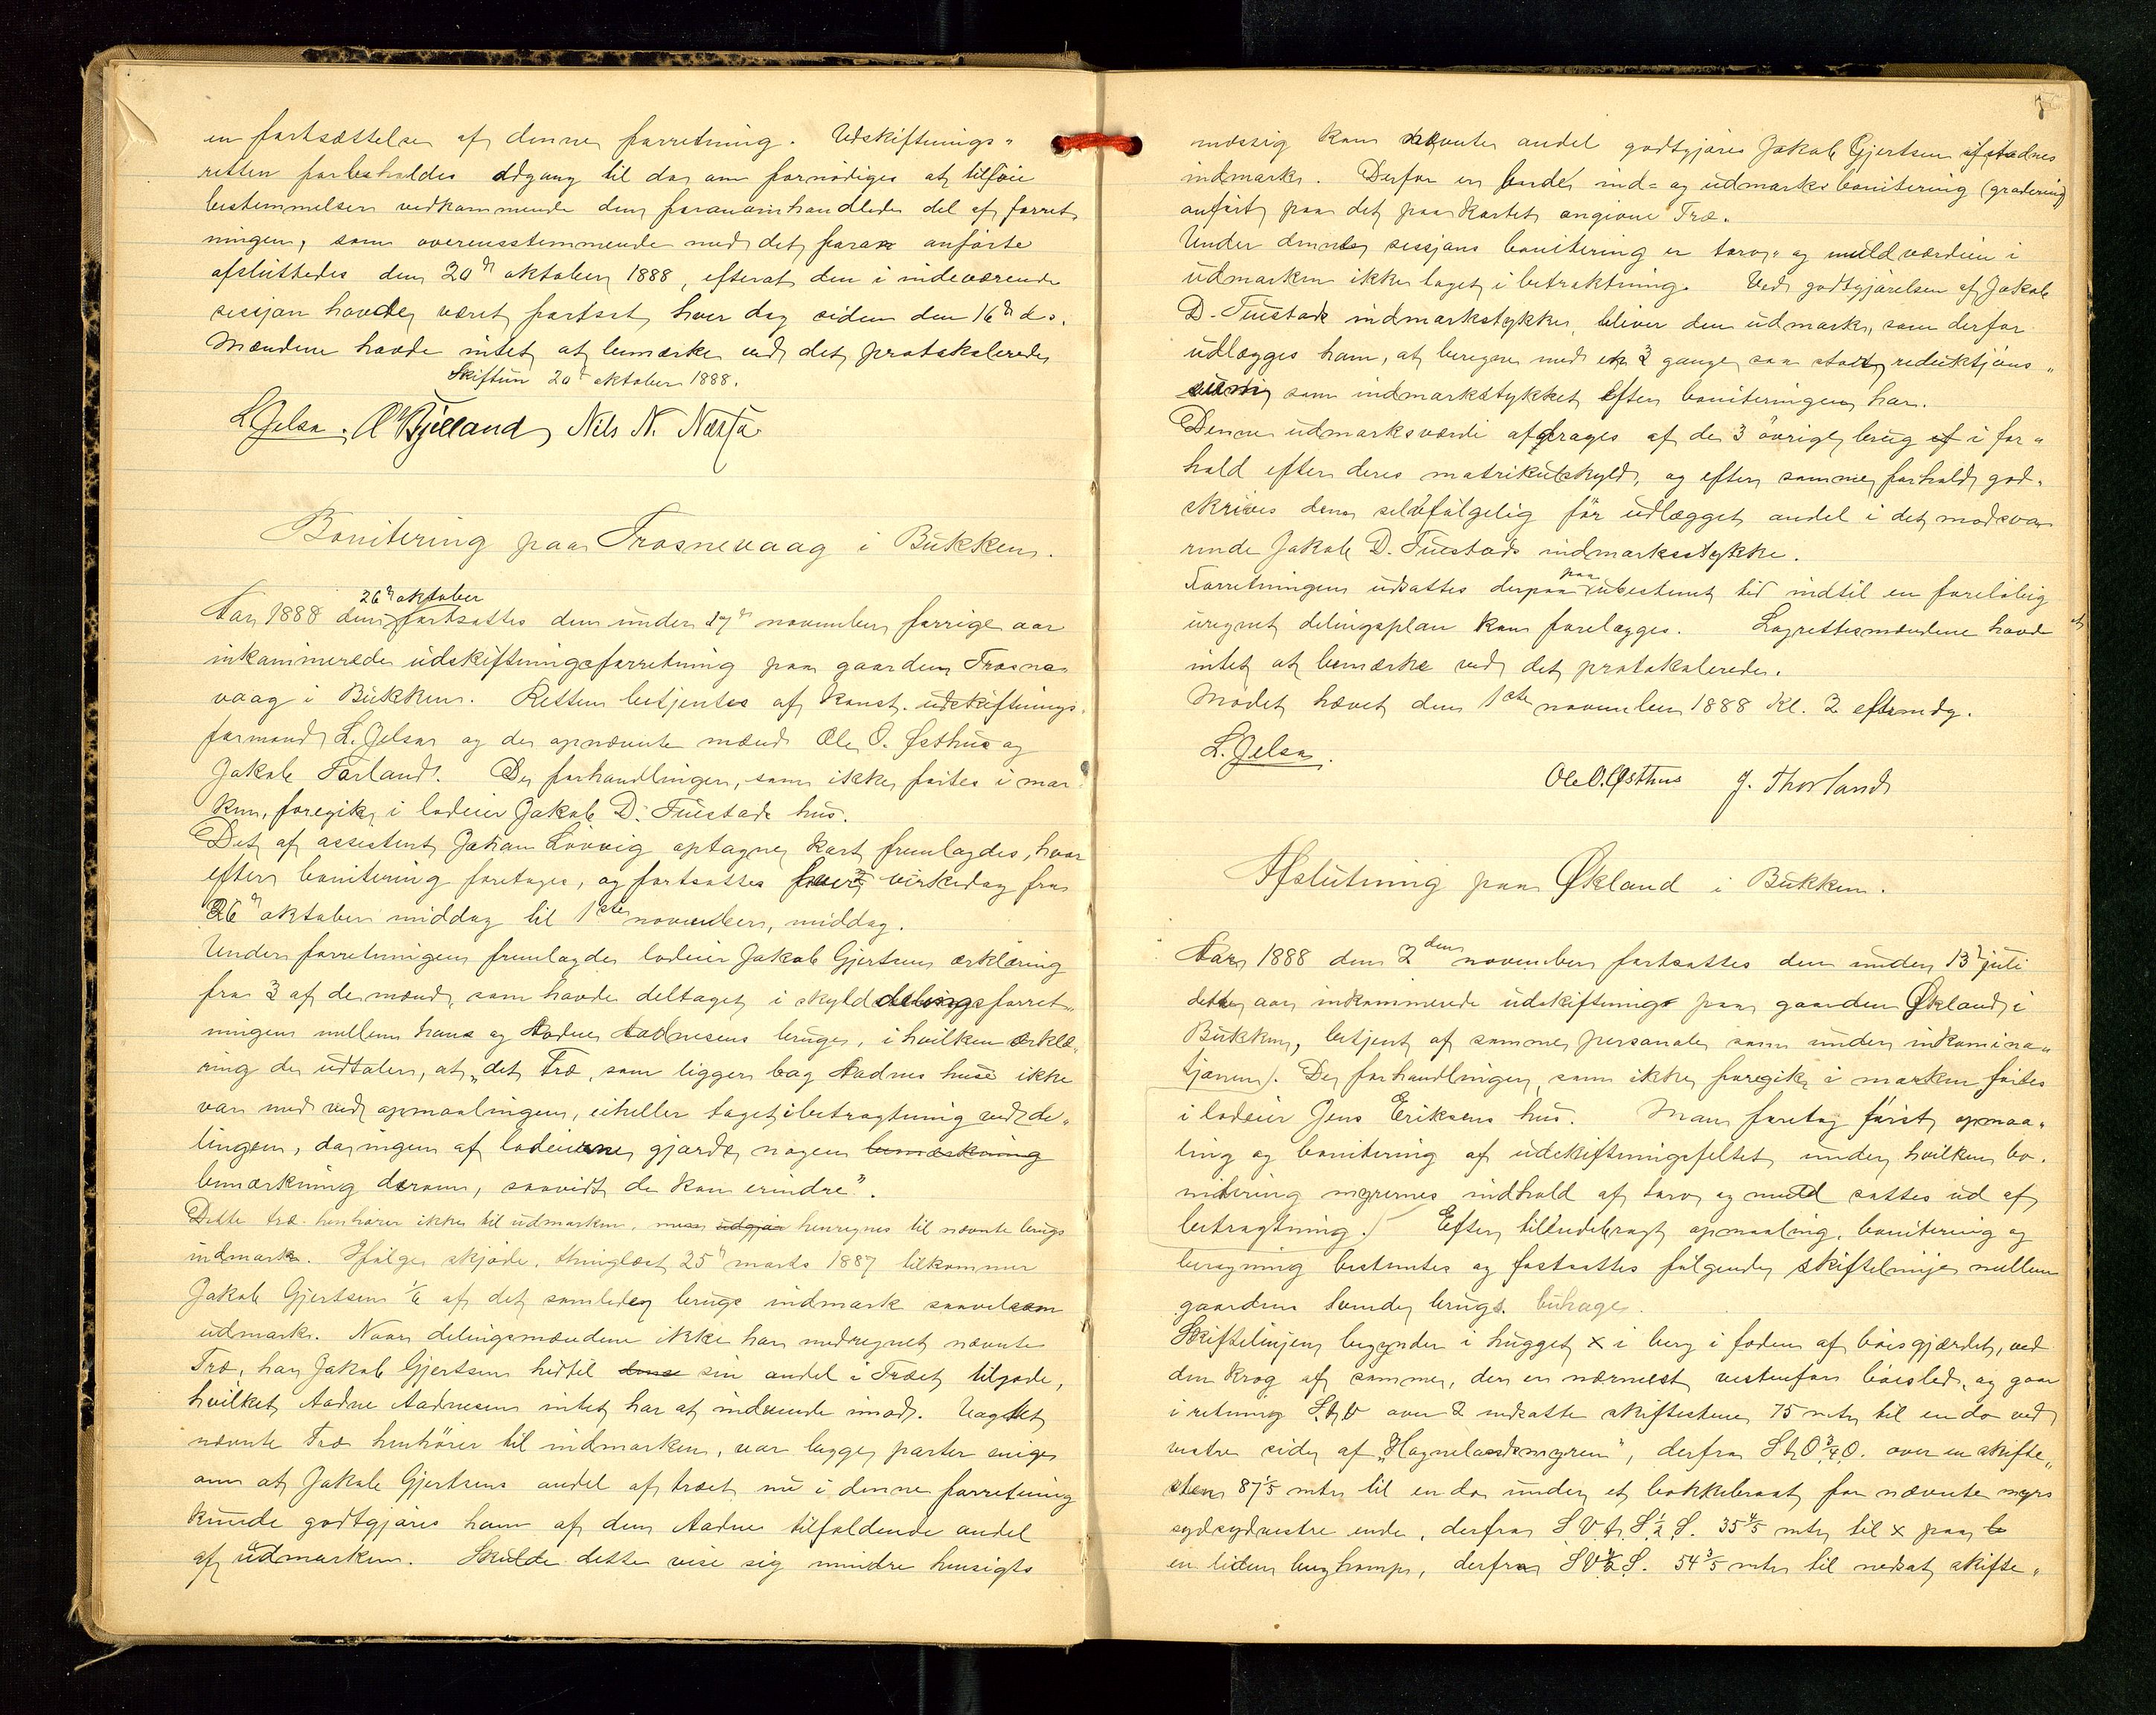 en fortsættelse af denne forretning. Udskiftnings-
retten forbeholdes adgang til da om fornödiges at tilföie
bestemmelser vedkommende den foranomhandlede del af forret-
ningen, som overensstemmende med det foran anförte
afsluttedes den 20de oktober 1888, efterat den i indeværende
sessjon havde været fortsat hver dag siden den 16de ds.
Mændene havde intet at bemærke ved det protokolerede
Skiftun 20de oktober 1888.
L. Jelsa. O Bjelland, Nils N. Næsta
Bonitering paa Trosnevaag i Bukken.
26de oktober
Aar 1888 den fortsattes den under 17de november forrige aar
inkaminerede udskiftningsforretning paa gaarden Trosne-
vaag i Bukken. Retten betjentes af konst. udskiftnings-
formand L. Jelsa og de opnævnte mænd Ole O. Østhus og
Jakob Torland. De forhandlinger, som ikke förtes i mar-
ken, foregik i lodeier Jakob D. Tuestads hus.
Det af assistent Johan Lövvig optagne kart fremlagdes, hvor-
efter bonitering foretoges, og fortsattes hver virkedag fra
26de oktober middag til 1ste november, middag.
Under forretningen fremlagdes lodeier Jakob Gjertsens erklæring
fra 3 af de mænd, som havde deltaget i skylddelingsforret-
ningen mellem hans og Aadne Aadnesens bruge, i hvilken erklæ-
ring de udtaler, at „det Træ, som ligger bag Aadnes huse ikke
var med ved opmaalingen, eiheller taget i betragtning ved de-
lingen, da ingen af lodeierne gjorde nogen bemæskning
bemærkning derom, saavidt de kan erindre".
Dette træ henhörer ikke til udmarken, men udgjör henregnes til nævnte brugs
indmark. Ifölge skjöde, thinglæst 25de marts 1887 tilkommer
Jakob Gjertsen 1/6 af det samlede brugs indmark saavelsom
udmark. Naar delingsmændene ikke har medregnet nævnte
Træ, har Jakob Gjertsen hidtil sin andel i Træet tilgode,
hvilket Aadne Aadnesen intet har at indvende imod. Uagtet
nævnte Træ henhörer til indmarken, var begge parter enige
om at Jakob Gjertsens andel af træet nu i denne forretning
kunde godtgjöres ham af den Aadne tilfaldende andel
af udmarken. Skulde dette vise sig mindre hensigts
mæssig kan nævnte andel godtgjöres Jakob Gjertsen ifstadnes
indmark. Derfor er baade ind- og udmarks bonitering (gradering)
anfört paa det paa kartet angivne Træ.
Under denne sessjons bonitering er torv- og muldværdien i
udmarken ikke taget i betraktning. Ved godtgjörelsen af Jakob
D. Tuestads indmarkstykke, bliver den udmark, som derfor
udlægges ham, at beregne med en 3 gange saa stor reduktjons-
som indmarkstykket efter boniteringen har.
Denne udmarksværdi afdrages af de 3 övrige brug i for-
hold efter deres matrikulskyld, og efter samme forhold god-
skrives dem selvfölgelig för udlægget andel i det modsva-
rende Jakob D. Tuestads indmarksstykke.
Forretningen udsattes derpaa paa ubestemt tid indtil en forelöbig
uregnet delingsplan kan forelægges. Lagrettesmændene havde
intet at bemærke ved det protokolerede.
Mödet hævet den 1ste november 1888 Kl. 2 eftrmdg.
L. Jelsa.
Ole O. Østhus J. Thorland
Afslutning paa Økland i Bukken.
Aar 1888 den 2den november fortsattes den under 13de juli
dette aar inkaminerede udskiftning paa gaarden Økland i
Bukken, betjent af samme personale som under inkamina-
tjonen. De forhandlinger, som ikke foregik i marken förtes
i lodeier Jens Eriksens hus. Man foretog först opmaa-
ling og bonitering af udskiftningsfeltet, under hvilken bo-
nitering myrernes indhold af torv og muld sattes ud af
betragtning. Efter tilendebragt opmaaling, bonitering og
beregning bestemtes og fastsattes fölgende skiftelinje mellem
gaardens tvende brugs buhage.
Skiftelinjen begynder i hugget x i berg i foden af böisgjærdet, ved
den krog af samme, der er nærmest vestenfor böisled, og gaar
i retning S.t.V over 2 nedsatte skiftestene 75 mtr til en do ved
vestre side af „Hagnelandsmyren", derfra S t.O 3/4 O. over en skifte-
sten 87 1/5 mtr til en do under et bakkebrat for nævnte myrs
sydsydvestre ende, derfra S V t. S 1/2 S. 35 4/5 mtr til x paa
en liden berghamp, derfra SV 1/2 S. 54 3/5 mtr til nedsat skifte-